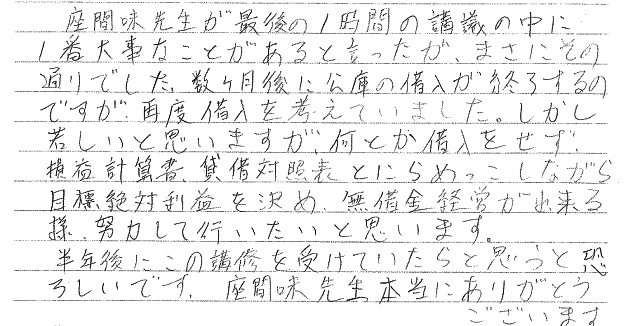 座間味先生が最後の1時間の講議の中に
1番大事なことがあると言ったが、まさにその
通りでした。数ヶ月後に公庫の借入が終了するの
ですが、再度借入を考えていました。しかし
苦しいと思いますが、何とか借入をせず、
損益計算書、貸借対照表とにらめっこしながら
目標絶対利益を決め、無借金経営が出来る
様、努力して行いたいと思います。
半年後にこの講修を受けていたらと思うと恐
ろしいです。座間味先生本当にありがとう
ございます